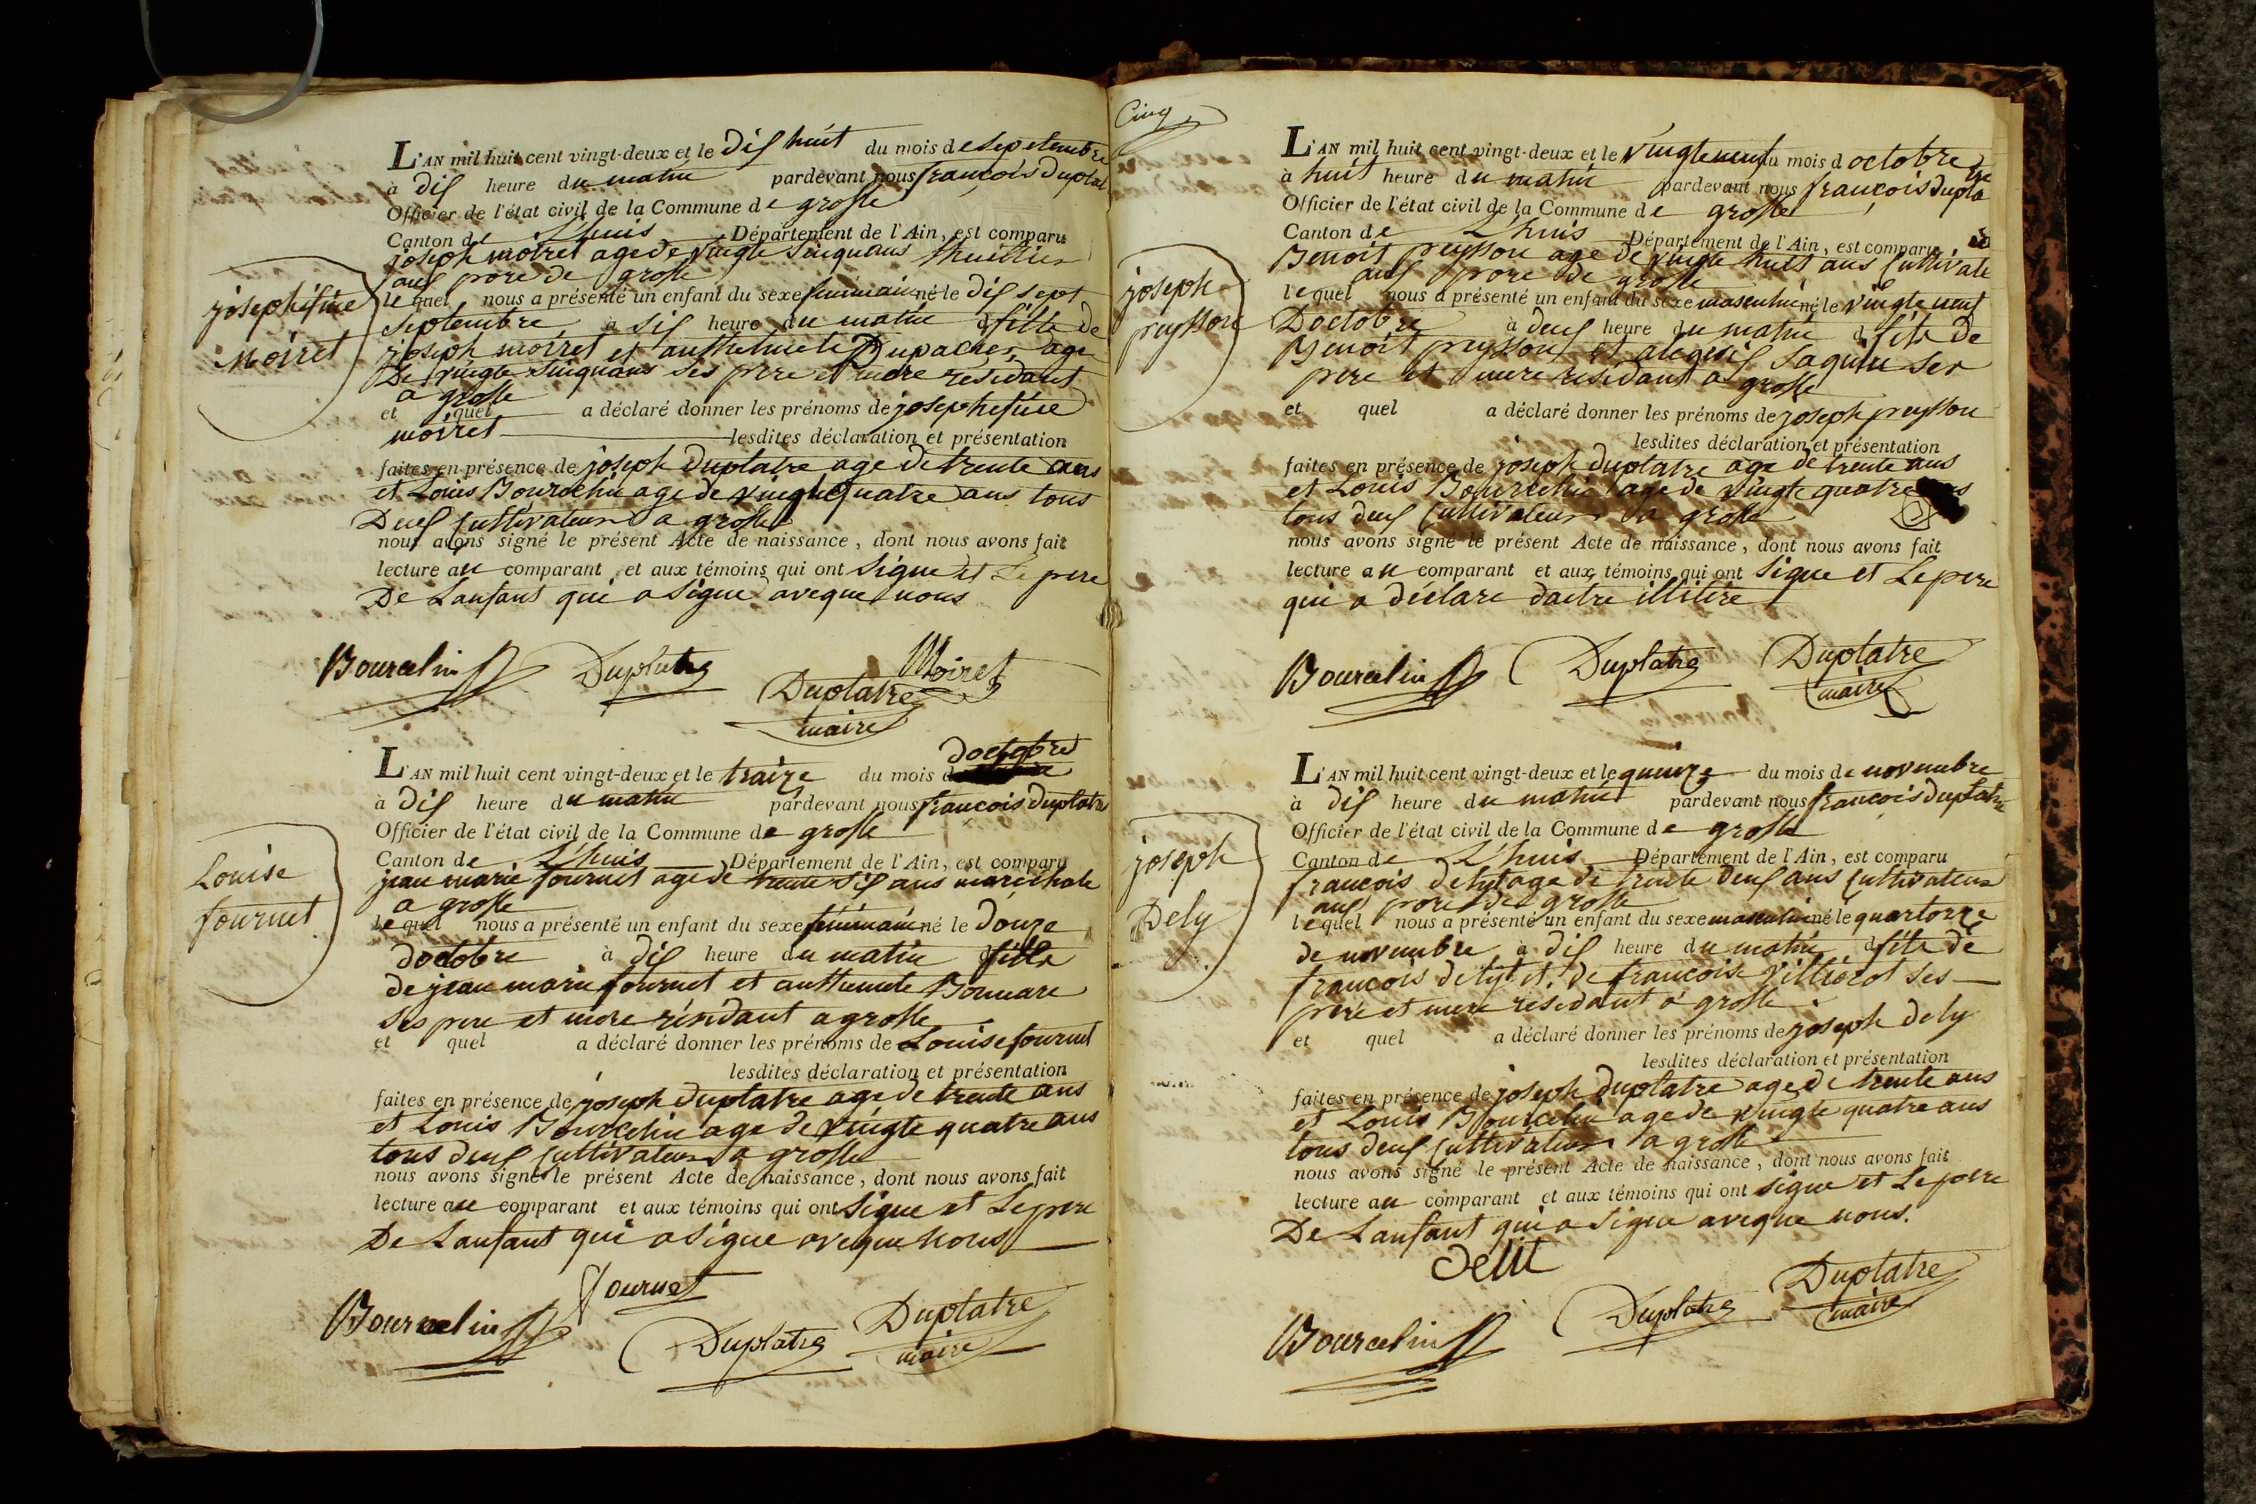 josephéfine
Moiret
L'AN mil huit cent vingt-deux et le dix huit du mois de sepetembre
à dix heure du matin pardevant nous françois duplat
Officier de l'état civil de la Commune de grosle
Canton de L'huis Département de l'Ain, est comparu
joseph moiret age de vingte sinquans thuillier
aux pore de grosle
lequel nous a présenté un enfant du sexe féminain né le dix sept
Septembre à six heure du matin fille de
joseph moiret et anthelmete Dupacher age
De vingte sinquans ses pere et mere residant
a grosle
et quel a déclaré donner les prénoms de josephefine
moiret lesdites déclaration et présentation
faites en présence de joseph duplatre age de trente ans
et Louis Bourcelin age de vingte quatre ans tous
Deux Cultivateurs a grosle
nous avons signé le présent Acte de naissance, dont nous avons fait
lecture au comparant et aux témoins qui ont signe et Le pere
De Lanfant qui a signe aveque nous
Bourcelin Duplatre Moiret
Duplatre
maire
Louise
fournet
doctobre
L'AN mil huit cent vingt-deux et le traize du mois d
à dix heure du matin pardevant nous francois duplatre
Officier de l'état civil de la Commune de grosle
Canton de L'huis Département de l'Ain, est comparu
jean marie fournet age de trente six ans marechale
a grosle
lequel nous a présenté un enfant du sexe féminain né le douze
doctobre à dix heure du matin fille
de jean marie fournet et anthemete Bonnare
ses pere et mere résidant a grosle
et quel a déclaré donner les prénoms de Louise fournet
lesdites déclaration et présentation
faites en présence de joseph duplatre age de trente ans
et Louis Bourcelin age de vingte quatre ans
tous deux Cultivateurs a grosle
nous avons signé le présent Acte de naissance, dont nous avons fait
lecture au comparant et aux témoins qui ont signe et Le pere
De Lanfant qui a signe aveque nous
fournet
Bourcelin Duplatre Duplatre
maire
Cinq
joseph
peysson
L'AN mil huit cent vingt-deux et le vingteneuf du mois d octobre
à huit heure du matin pardevant nous françois dupla tre
Officier de l'état civil de la Commune de grosle
Canton de L'huis Département de l'Ain, est comparu
Benoit peysson age de vingte huit ans Cultivate
aux pore de grosle
lequel nous a présenté un enfant du sexe masculin né le vingte neuf
Doctobre à deux heure du matin fils de
Benoit peysson et alegsix Saquin ses
pere et mere residant a grosle
et quel a déclaré donner les prénoms de joseph peysson
lesdites déclaration et présentation
faites en présence de joseph duplatre age de trente ans
et Louis Bourcelin age de vingte quatre
tous deux Cultivateurs a grosle
nous avons signé le présent Acte de naissance, dont nous avons fait
lecture au comparant et aux témoins qui ont signe et Le pere
qui a déclare daitre illitere
Bourcelin Duplatre Duplatre
maire
joseph
Dely
L'AN mil huit cent vingt-deux et le quinze du mois de novembre
à dix heure du matin pardevant nous françois duplatre
Officier de l'état civil de la Commune de grosle
Canton de L'huis Département de l'Ain, est comparu
francois delyt age de trante deux ans Cultivateur
aux pore de grosle
lequel nous a présenté un enfant du sexe masculin né le quartorze
de novembre à dix heure du matin fils de
francois delyt et de francoise villierot ses
pere et mere residant a grosle
et quel a déclaré donner les prénoms de joseph dely
lesdites déclaration et présentation
faites en présence de joseph duplatre age de trente ans
et Louis Bourcelin age de vingte quatre ans
tous deux Cultivateurs a grosle
nous avons signé le présent Acte de naissance, dont nous avons fait
lecture au comparant et aux témoins qui ont signe et Le pere
De Lanfant qui a signe aveque nous.
delit
Bourcelin Duplatre Duplatre
maire